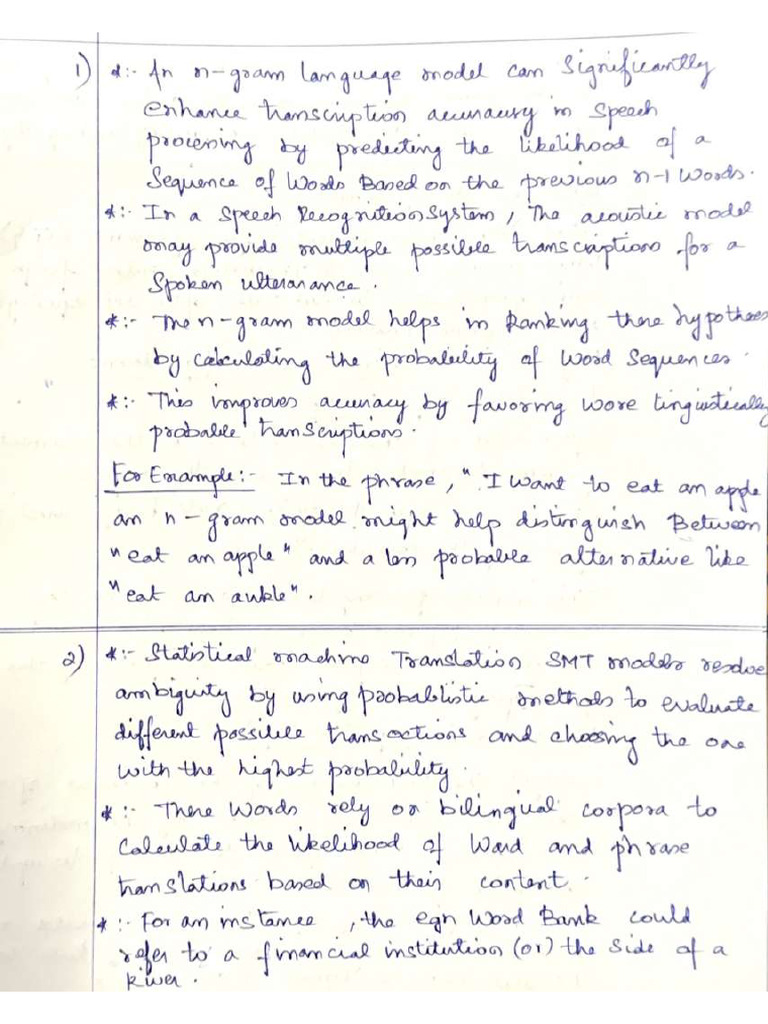 1) *:- An n-gram language model can significantly
enhance transcription accuracy in speech
processing by predicting the likelihood of a
Sequence of Words Based on the previous n-1 Words.
*:- In a Speech Recognition System, The acoustic model
may provide multiple possible transcriptions for a
Spoken utterarance.
*:- The n-gram model helps in Ranking these hypotheses
by calculating the probability of Word Sequences.
*:- This improves accuracy by favoring more linguistically
probable transcriptions.
For Example:- In the phrase, "I Want to eat an apple
an n-gram model might help distinguish Between
"eat an apple" and a less probable alternative like
"eat an ankle".
2) *:- Statistical machine Translation SMT models resolve
ambiguity by using probablistic methods to evaluate
different possible transactions and choosing the one
with the highest probability.
*:- These Words rely on bilingual corpora to
Calculate the likelihood of Word and phrase
translations based on their content.
*:- For an instance, the egn Word Bank could
refer to a financial institution (or) the side of a
River.